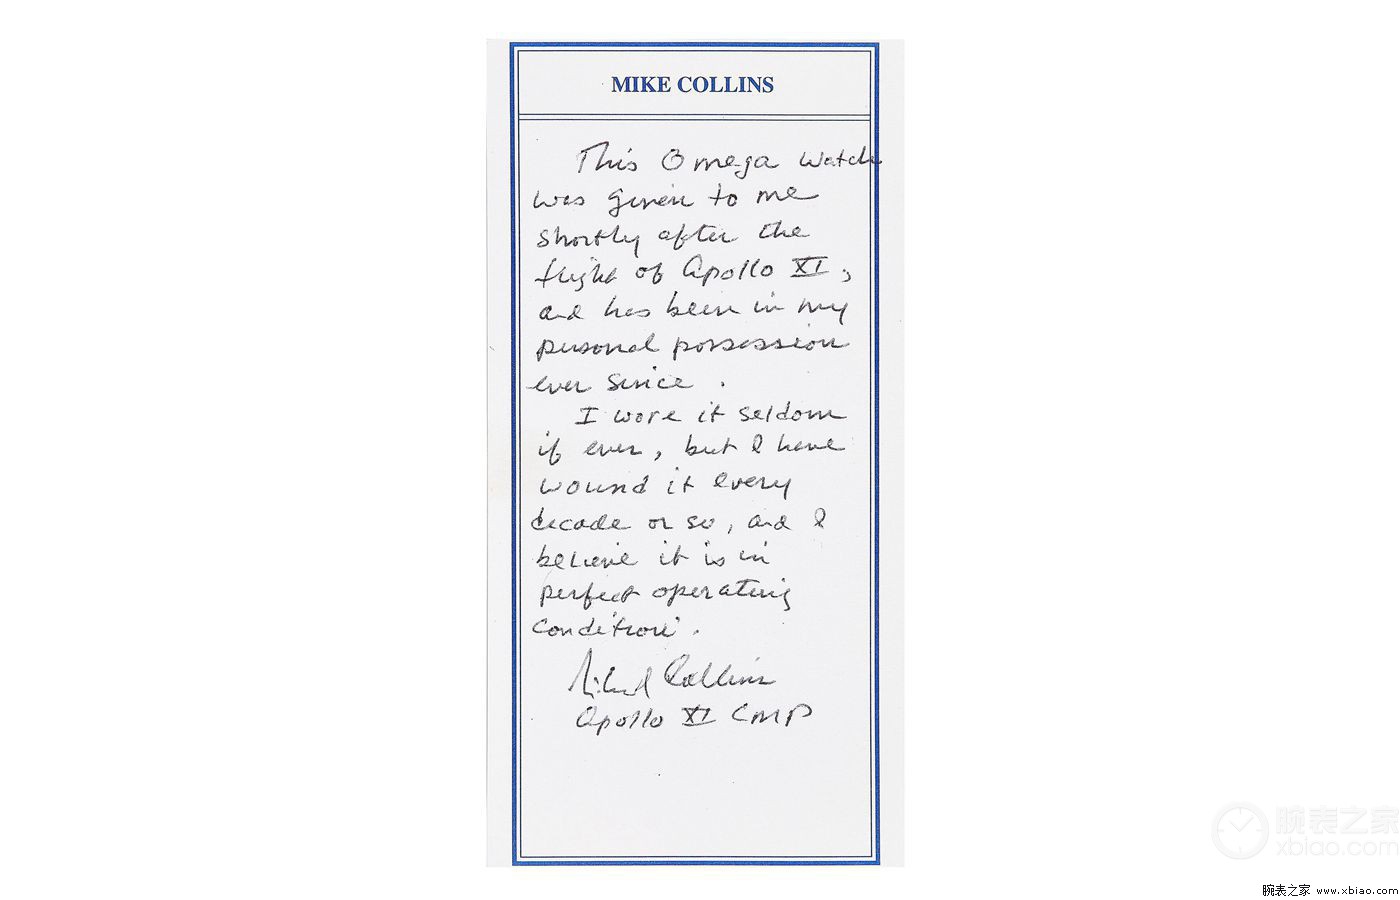 MIKE COLLINS
This Omega watch
was given to me
shortly after the
flight of Apollo XI,
and has been in my
personal possession
ever since.
I wore it seldom
if ever, but I have
wound it every
decade or so, and I
believe it is in
perfect operating
condition.
Michael Collins
Apollo XI CMP
腕表之家
xbiao.com
腕表之家 www.xbiao.com